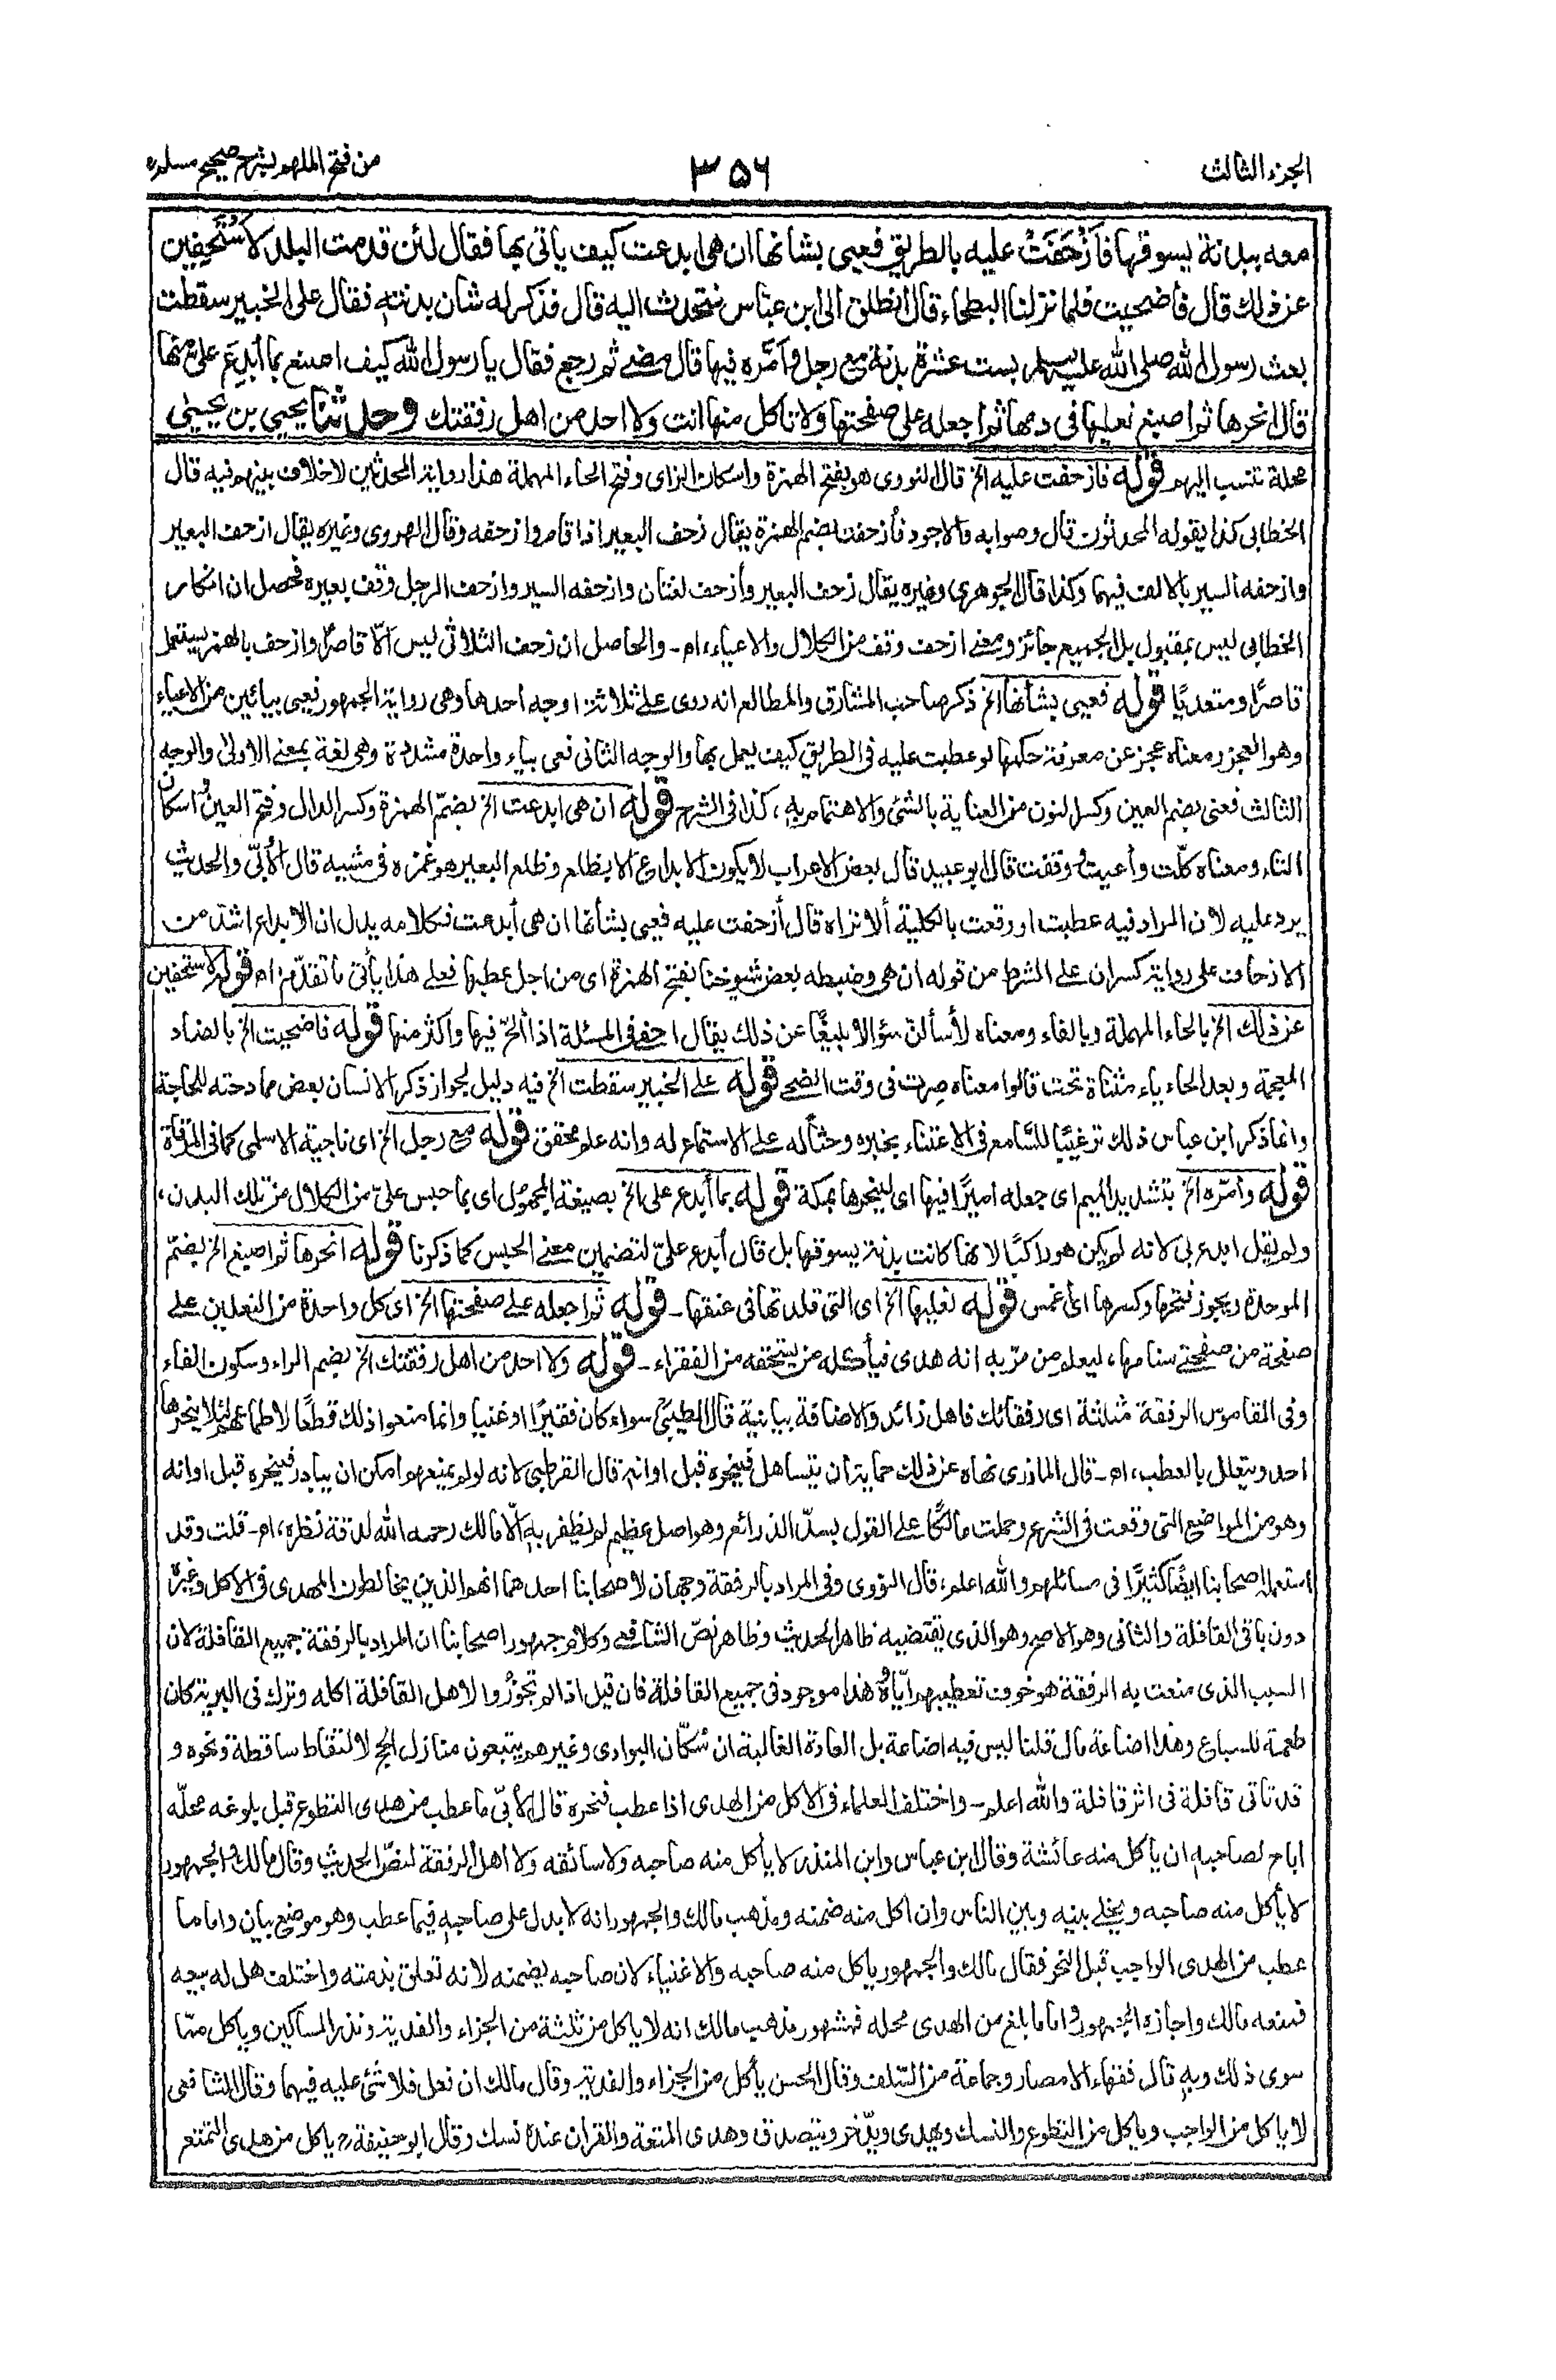 الجزء الثالث
٣٥٦
من فتح الملهم بشرح صحيح مسلم
معه ببدنة يسوقها فَأَزْحَفَتْ عليه بالطريق فعيى بشانها ان هى ابدعت كيف ياتى بها فقال لئن قدمت البلد لاستحفين
عن ذلك قال فاضحيت فلما نزلنا البطحاء قال انطلق الى ابن عباس نتحدث اليه قال فذكر له شان بدنته فقال على الخبير سقطت
بعث رسول الله صلى الله عليه وسلم بست عشرة بدنة مع رجل وأمّره فيها قال مضى ثم رجع فقال يا رسول الله كيف اصنع بما أُبدِعَ على منها
قال انحرها ثم اصبغ نعليها فى دمها ثم اجعله على صفحتها ولا تاكل منها انت ولا احد من اهل رفقتك وحدثنا يحيى بن يحيى
محلة تنسب اليهم قوله فازحفت عليه الخ قال النووى هو بفتح الهمزة واسكان الزاى وفتح الحاء المهملة هذا رواية المحدثين لاخلاف بينهم فيه قال
الخطابى كذا يقوله المحدثون قال وصوابه والاجود فأزحفت بضم الهمزة يقال زحف البعير اذا قام وازحفه وقال الهروى وغيره يقال ازحف البعير
وازحفه السير بالالف فيهما وكذا قال الجوهرى وغيره يقال زحف البعير وأزحف لغتان وازحفه السير وازحف الرجل وقف بعيره فحصل ان انكار
الخطابى ليس بمقبول بل الجميع جائز ومعنى ازحف وقف من الكلال والاعياء، اھ - والحاصل ان زحف الثلاثى ليس الّا قاصرًا وازحف بالهمز يستعمل
قاصرًا ومتعديًا قوله فعيى بشأنها الخ ذكر صاحب المشارق والمطالع انه روى على ثلاثة اوجه احدها وهى رواية الجمهور فعيى بيائين من الاعياء
وهو العجز ومعناه عجز عن معرفة حكمها لو عطبت عليه فى الطريق كيف يعمل بها والوجه الثانى فعى بياء واحدة مشددة وهى لغة بمعنى الاولى والوجه
الثالث فعنى بضم العين وكسر النون من العناية بالشئ والاهتمام به، كذا فى الشرح قوله ان هى ابدعت الخ بضمّ الهمزة وكسر الدال وفتح العين واسكان
التاء ومعناه كلّت وأعيت ووقفت قال ابو عبيد قال بعض الاعراب لا يكون الابداع الا بظلع وظلع البعير هو غمزه فى مشيه قال الأبّى والحديث
يرد عليه لان المراد فيه عطبت او وقعت بالكلية ألا تراه قال أزحفت عليه فعيى بشأنها ان هى أبدعت فكلامه يدل ان الابداع اشد من
الازحاف على رواية كسر ان على الشرط من قوله ان هى وضبطه بعض شيوخنا بفتح الهمزة اى من اجل عطبها فعلى هذا يأتى ما تقدّم، اھ قوله لاستحفين
عن ذلك الخ بالحاء المهملة وبالفاء ومعناه لأسألن سؤالا بليغًا عن ذلك يقال احفى فى المسئلة اذا ألحّ فيها واكثر منها قوله فاضحيت الخ بالضاد
المعجمة وبعد الحاء ياء مثناة تحت قالوا معناه صرت فى وقت الضحى قوله على الخبير سقطت الخ فيه دليل لجواز ذكر الانسان بعض ممادحته للحاجة
وانما ذكر ابن عباس ذلك ترغيبًا للسّامع فى الاعتناء بخبره وحثًا له على الاستماع له وانه علم محقق قوله مع رجل الخ اى ناجية الاسلمى كما فى المرقاة
قوله وأمّره الخ بتشديد الميم اى جعله اميرًا فيها اى لينحرها بمكة قوله بما أبدع على الخ بصيغة المجهول اى بما حبس علىّ من الكلال من تلك البدن،
ولم يقل ابدع بى لانه لم يكن هو راكبًا لانها كانت بدنة يسوقها بل قال أبدع علىّ لتضمين معنى الحبس كما ذكرنا قوله انحرها ثم اصبغ الخ بضمّ
الموحدة ويجوز فتحها وكسرها اى اغمس قوله نعليها الخ اى التى قلدتها فى عنقها - قوله ثم اجعله على صفحتها الخ اى كل واحدة من النعلين على
صفحة من صفحتى سنامها، ليعلم من مرّ به انه هدى فيأكله من يستحقه من الفقراء - قوله ولا احد من اهل رفقتك الخ بضم الراء وسكون الفاء
وفى القاموس الرفقة مثلثة اى رفقائك فاهل زائد والاضافة بيانية قال الطيبىّ سواء كان فقيرًا او غنيا وانما منعوا ذلك قطعًا لاطماعهم لئلا ينحرها
احد ويتعلل بالعطب، اھ - قال المازرى نهاه عن ذلك حماية ان يتساهل فينحره قبل اوانه قال القرطبى لانه لو لم يمنعهم امكن ان يبادر فينحره قبل اوانه
وهو من المواضع التى وقعت فى الشرع وحملت مالكًا على القول بسدّ الذرائع وهو اصل عظيم لم يظفر به الّا مالك رحمه الله لدقة نظره، اھ - قلت وقد
استعمله اصحابنا ايضًا كثيرًا فى مسائلهم والله اعلم، قال النووى وفى المراد بالرفقة وجهان لأصحابنا احدهما انهم الذين يخالطون المهدى فى الاكل وغيره
دون باقى القافلة والثانى وهو الاصح وهو الذى يقتضيه ظاهر الحديث وظاهر نصّ الشافعى وكلام جمهور اصحابنا ان المراد بالرفقة جميع القافلة لان
السبب الذى منعت به الرفقة هو خوف تعطيبهم ايّاه وهذا موجود فى جميع القافلة فان قيل اذا لم تجوّزوا لاهل القافلة اكله وترك فى البرية كان
طعمة للسباع وهذا اضاعة مال قلنا ليس فيه اضاعة بل العادة الغالبة ان سكّان البوادى وغيرهم يتبعون منازل الحج لالتقاط ساقطة ونحوه و
قد تاتى قافلة فى اثر قافلة والله اعلم - واختلف العلماء فى الاكل من الهدى اذا عطب فنحره قال الأبّى ما عطب من هدى التطوع قبل بلوغه محلّه
اباح لصاحبه ان يأكل منه عائشة وقال ابن عباس وابن المنذر لا يأكل منه صاحبه ولا سائقه ولا اهل الرفقة لنصّ الحديث وقال مالك والجمهور
لا يأكل منه صاحبه ويخلى بينه وبين الناس وان اكل منه ضمنه ومذهب مالك والجمهور انه لا بدل على صاحبه فيما عطب وهو موضع بيان واما ما
عطب من الهدى الواجب قبل النحر فقال مالك والجمهور ياكل منه صاحبه والاغنياء لان صاحبه يضمنه لانه تعلق بذمته واختلف هل له بيعه
فمنعه مالك واجازه الجمهور واما ما بلغ من الهدى محله فمشهور مذهب مالك انه لا ياكل من ثلثة من الجزاء والفدية ونذر المساكين وياكل ممّا
سوى ذلك وبه قال فقهاء الامصار وجماعة من السّلف وقال الحسن يأكل من الجزاء والفدية وقال مالك ان فعل فلا شئ عليه فيهما وقال الشافعى
لا ياكل من الواجب وياكل من التطوع والنسك ويهدى ويدّخر ويتصدق وهدى المتعة والقران عنده نسك وقال ابو حنيفة رح ياكل من هدى التمتع